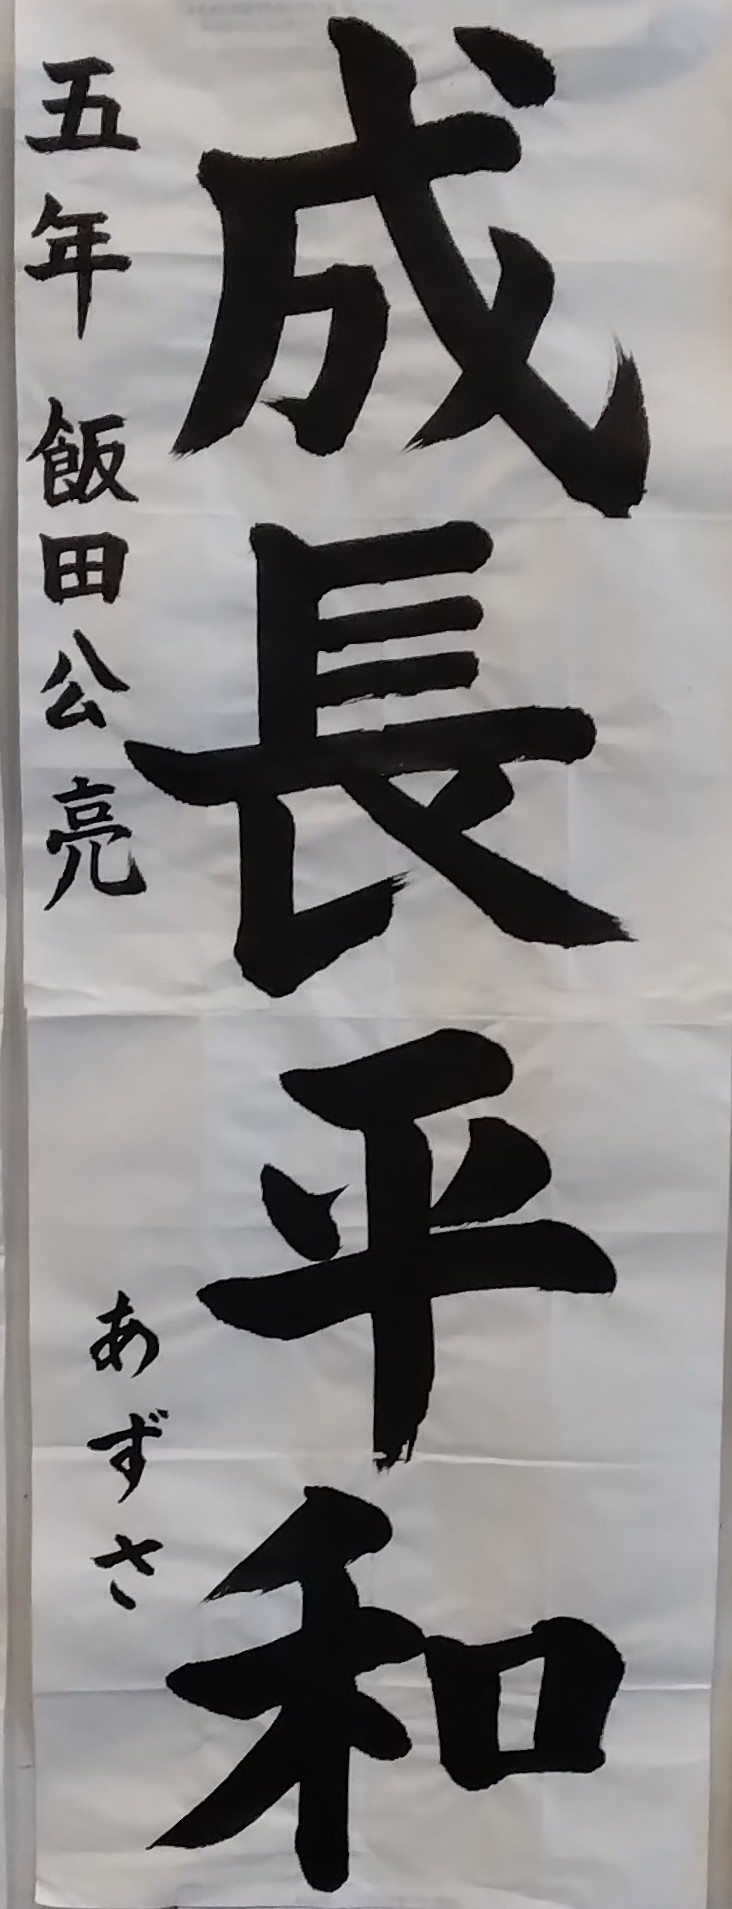 成長平和
五年 飯田公亮
あずさ